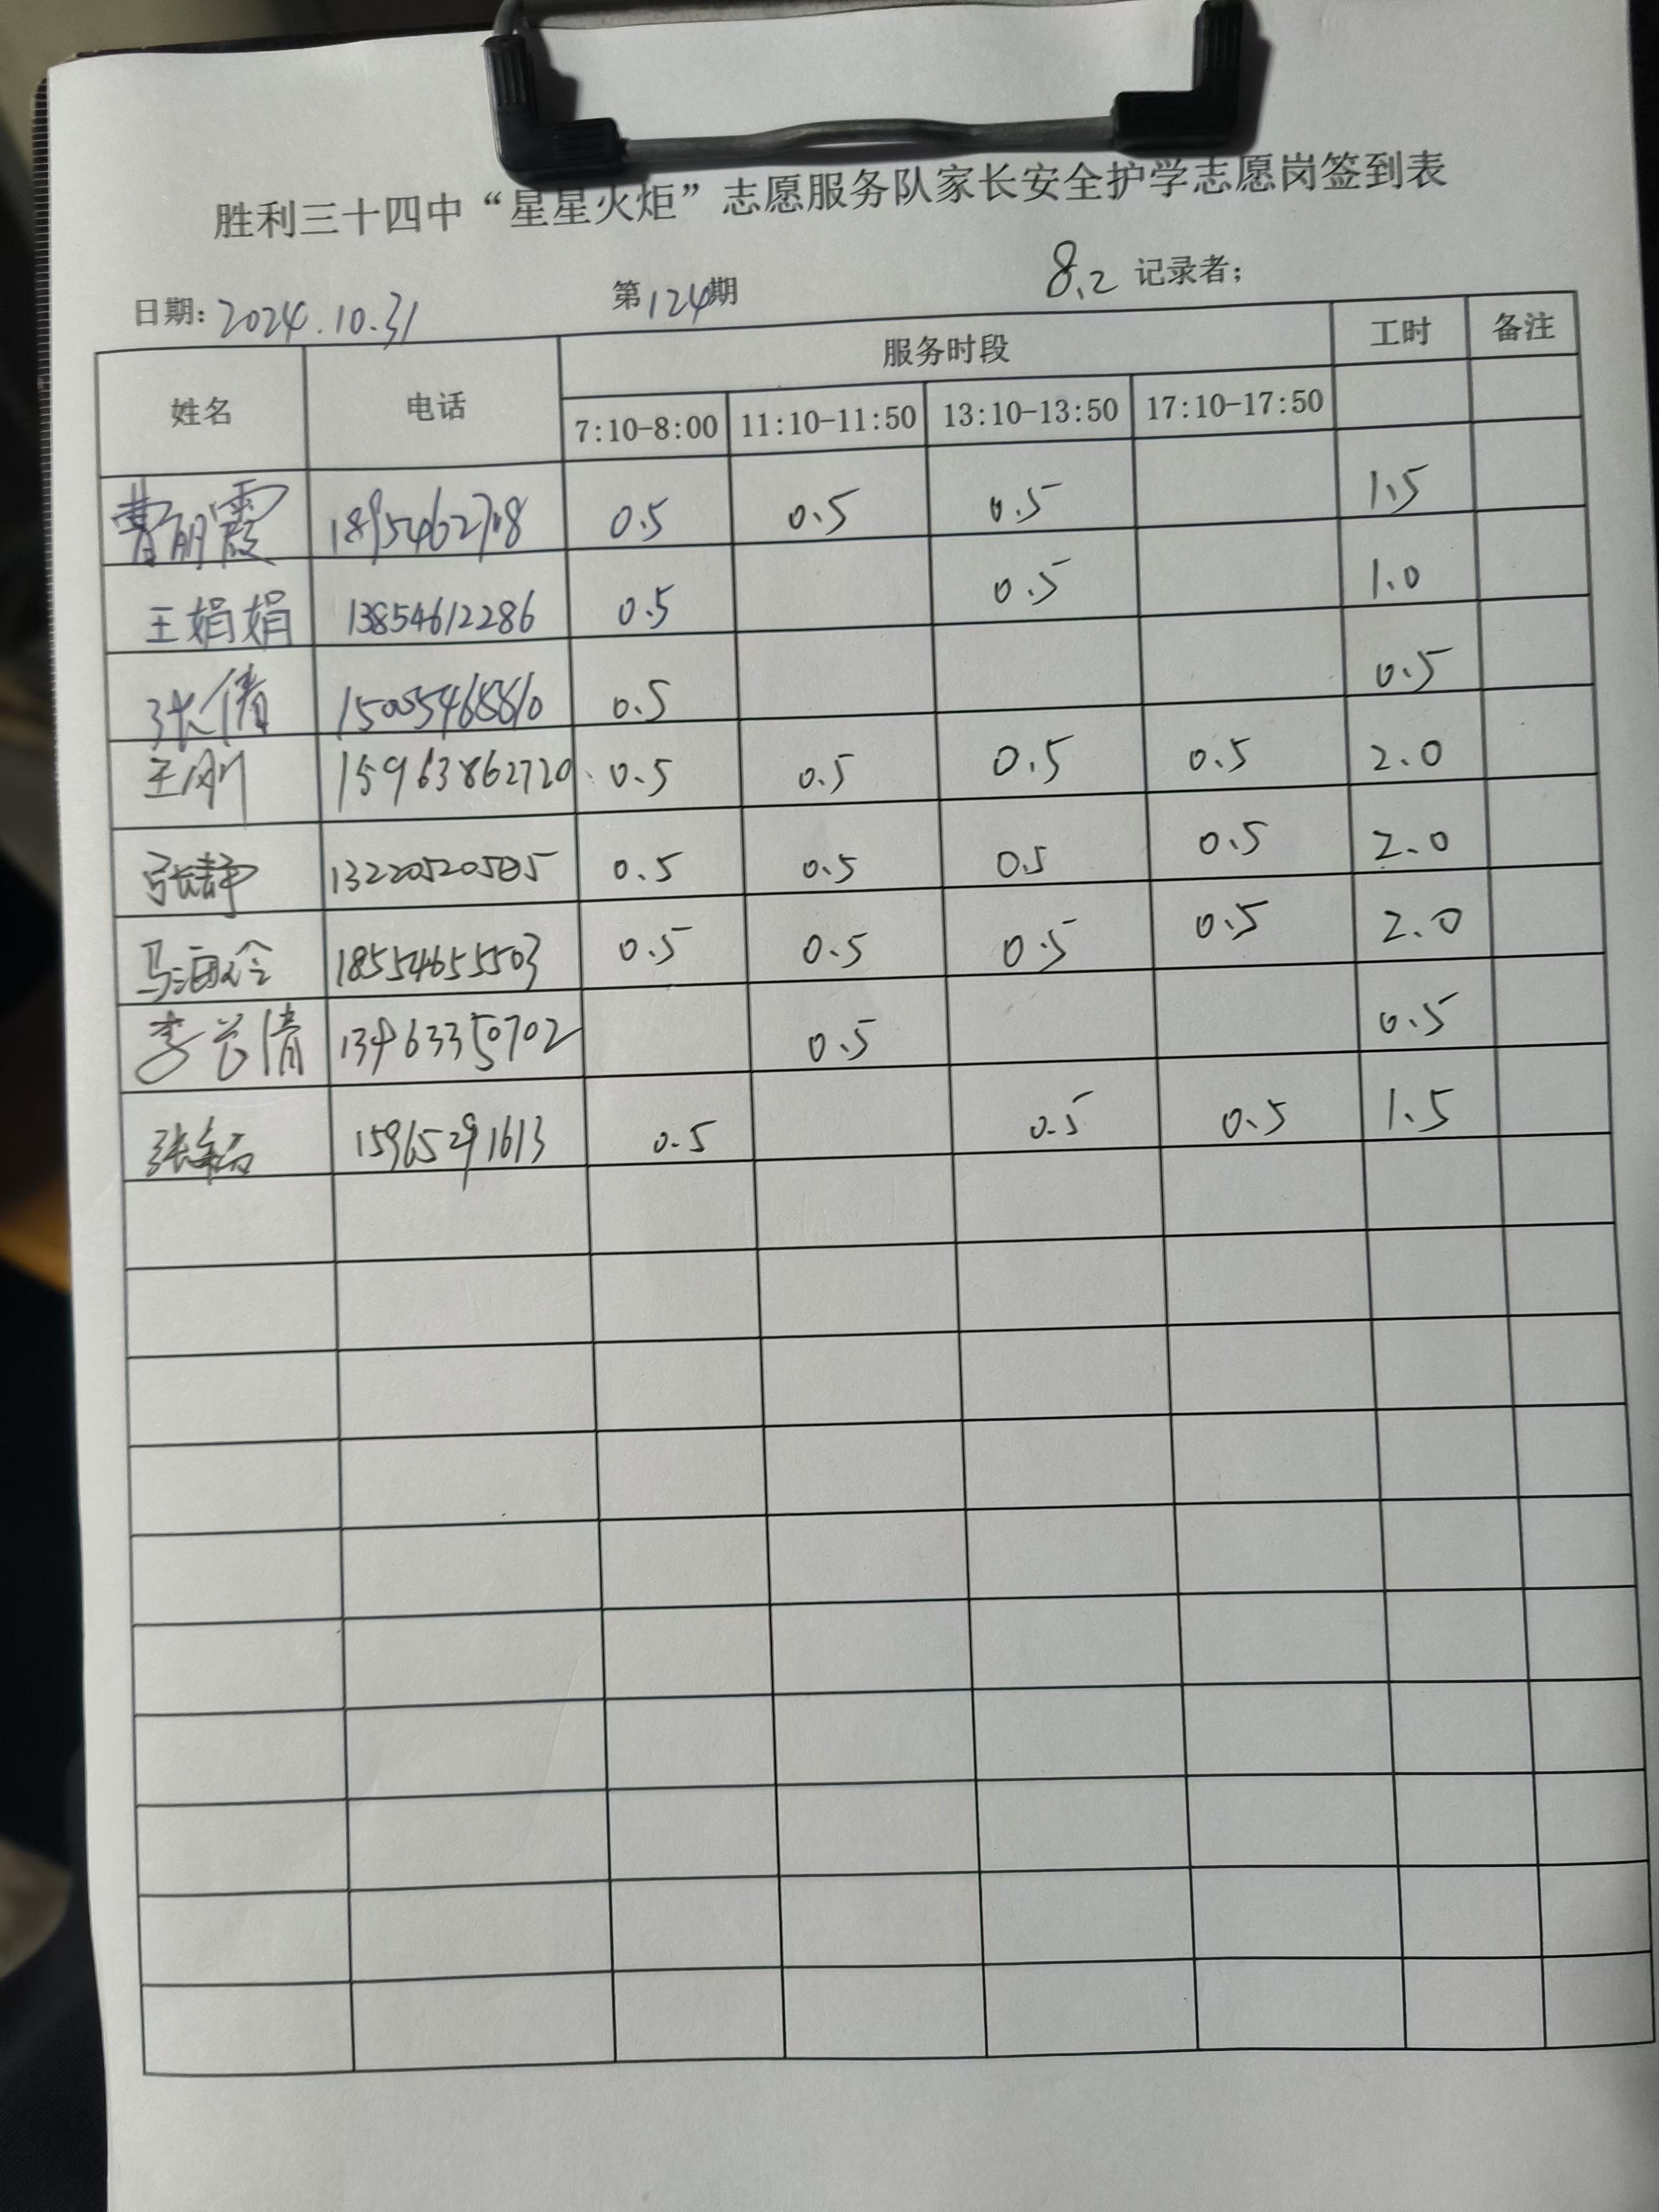 胜利三十四中“星星火炬”志愿服务队家长安全护学志愿岗签到表
日期: 2024.10.31 第124期 8.2 记录者;
姓名 电话 服务时段 工时 备注
7:10-8:00 11:10-11:50 13:10-13:50 17:10-17:50
曹丽霞 0.5 0.5 0.5 1.5
王娟娟 13854612286 0.5 0.5 1.0
张倩 0.5 0.5
王刚 15963862720 0.5 0.5 0.5 0.5 2.0
张静 13220520585 0.5 0.5 0.5 0.5 2.0
马 18554655503 0.5 0.5 0.5 0.5 2.0
李 倩 13963350702 0.5 0.5
张 15965291613 0.5 0.5 0.5 1.5